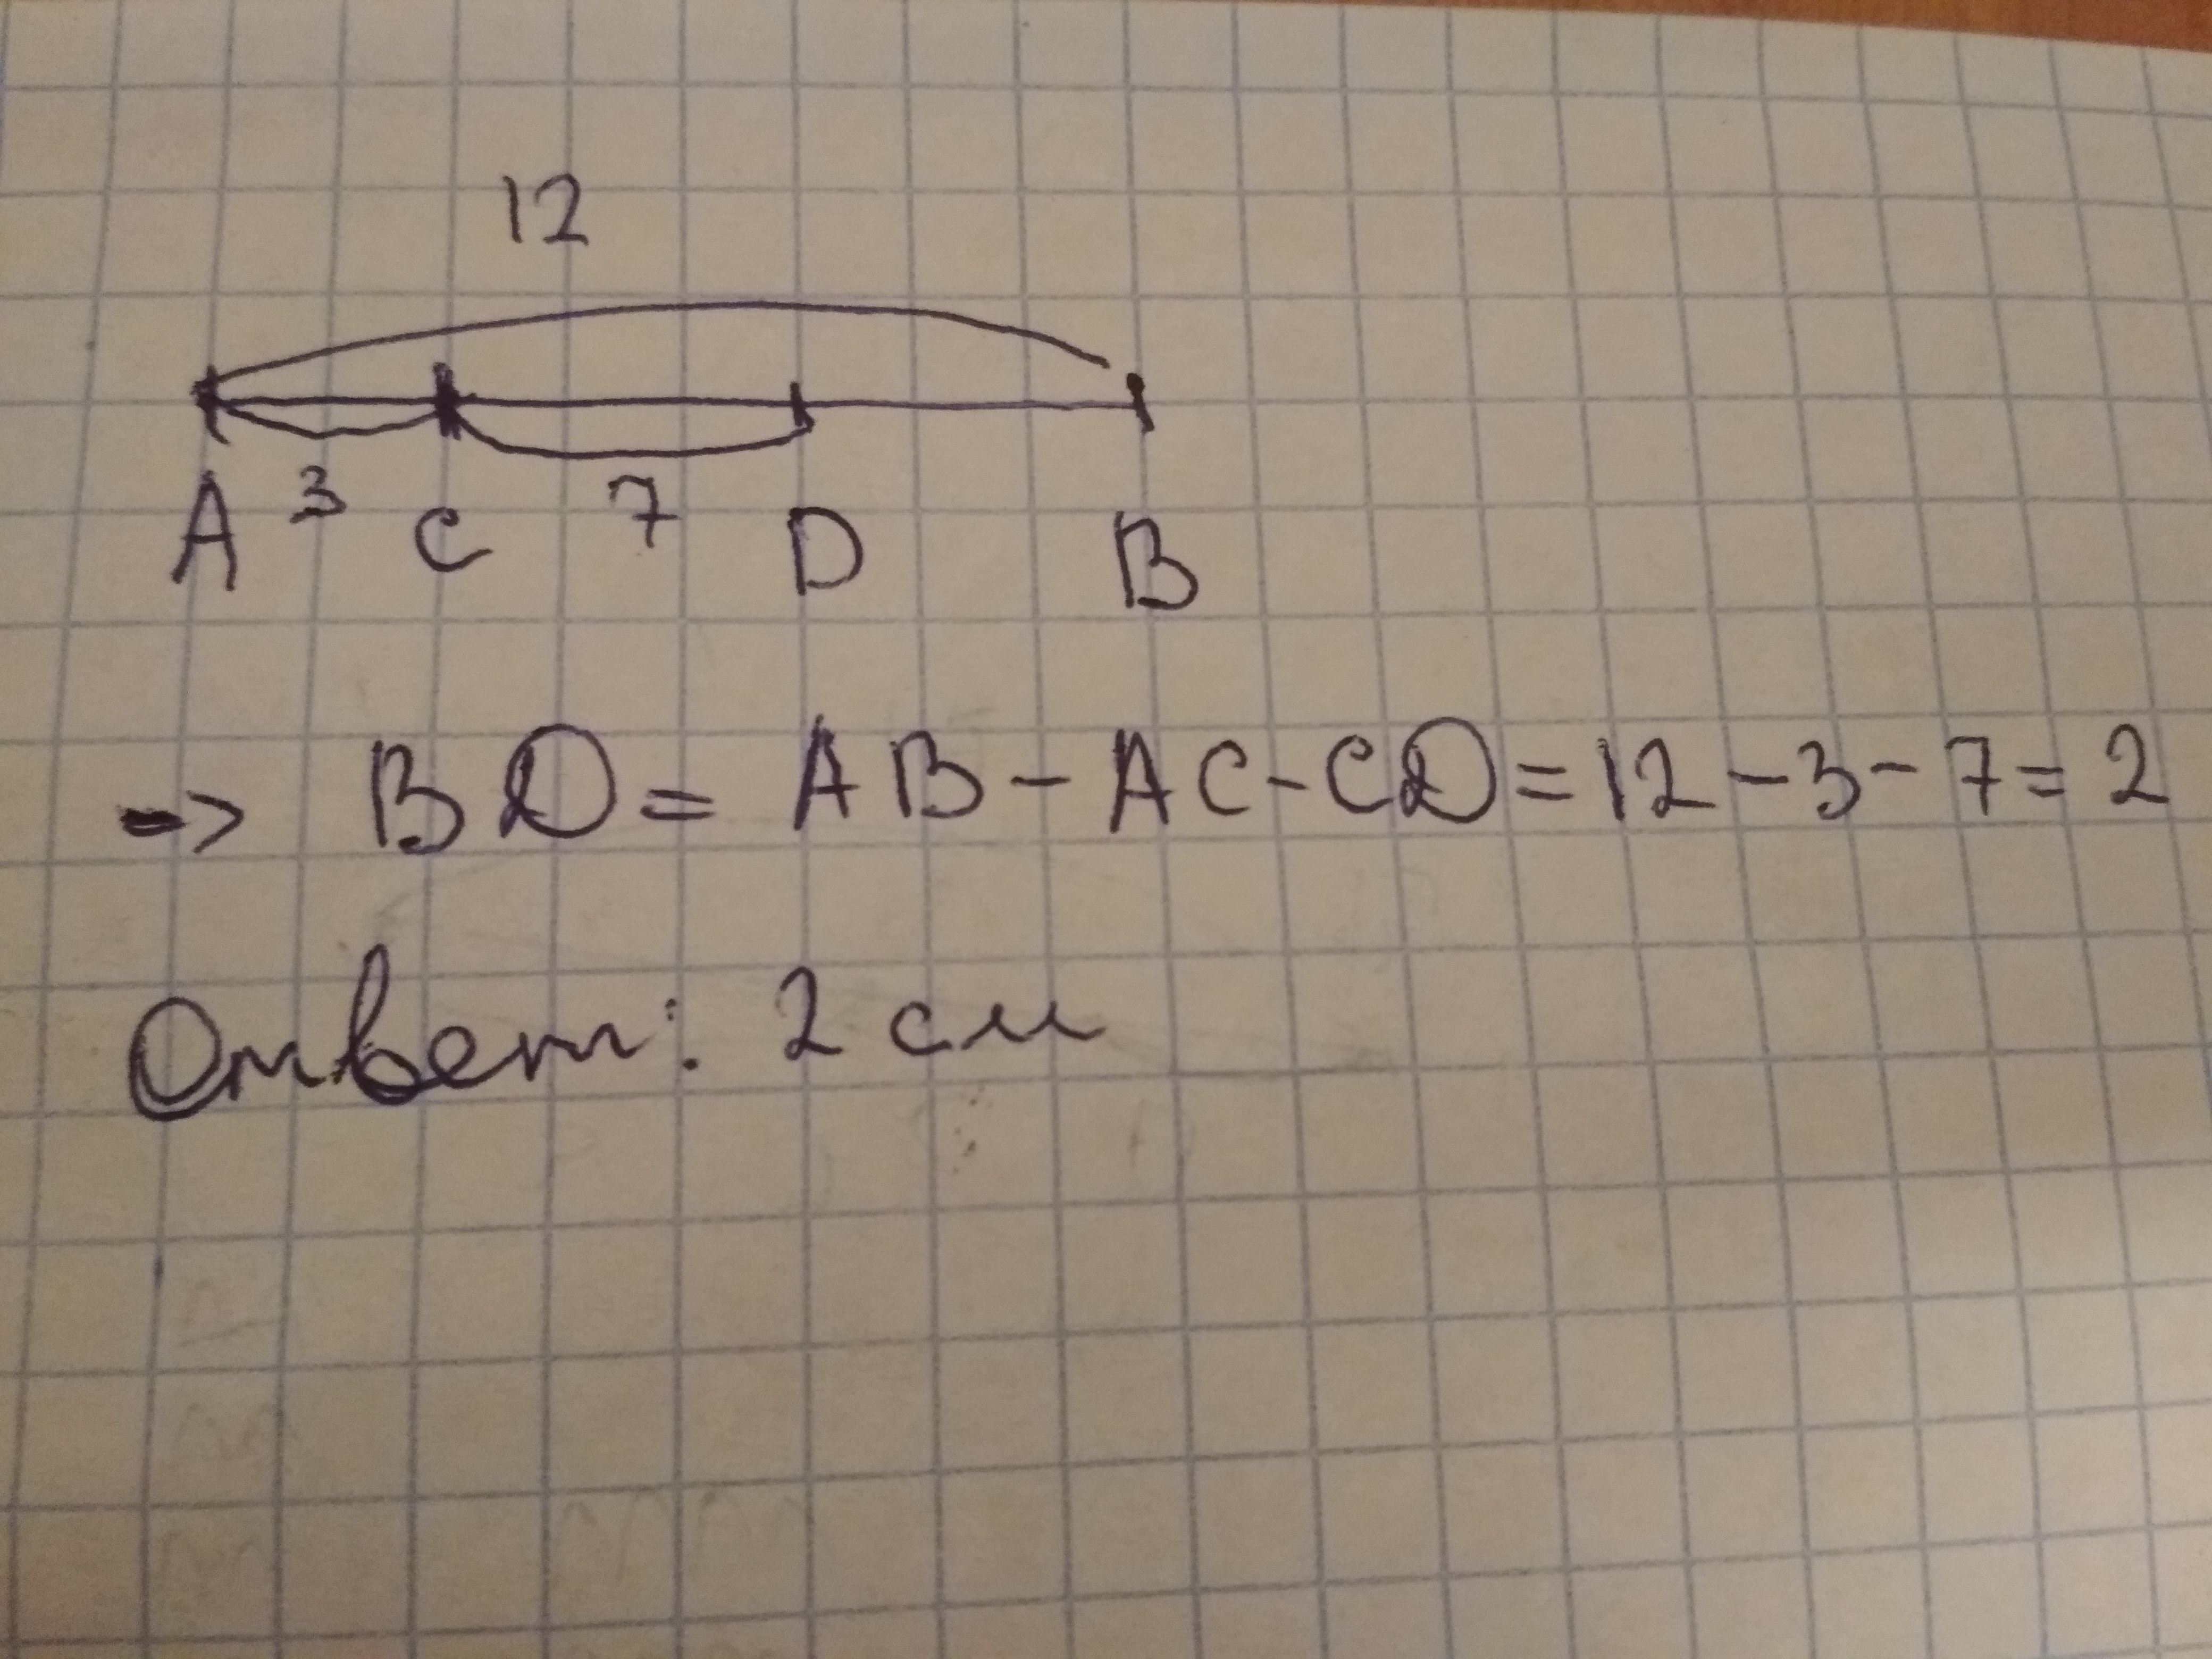 12
A 3 C 7 D B
=> BD = AB - AC - CD = 12 - 3 - 7 = 2
Ответ: 2 см